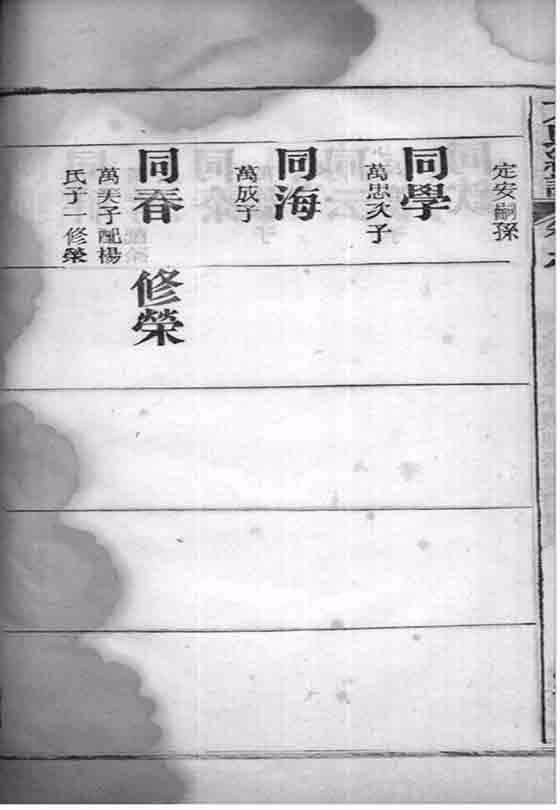 定安嗣孫
同學
萬忠次子
同海
萬成子
同春
萬美子配楊
氏子一修榮
修榮